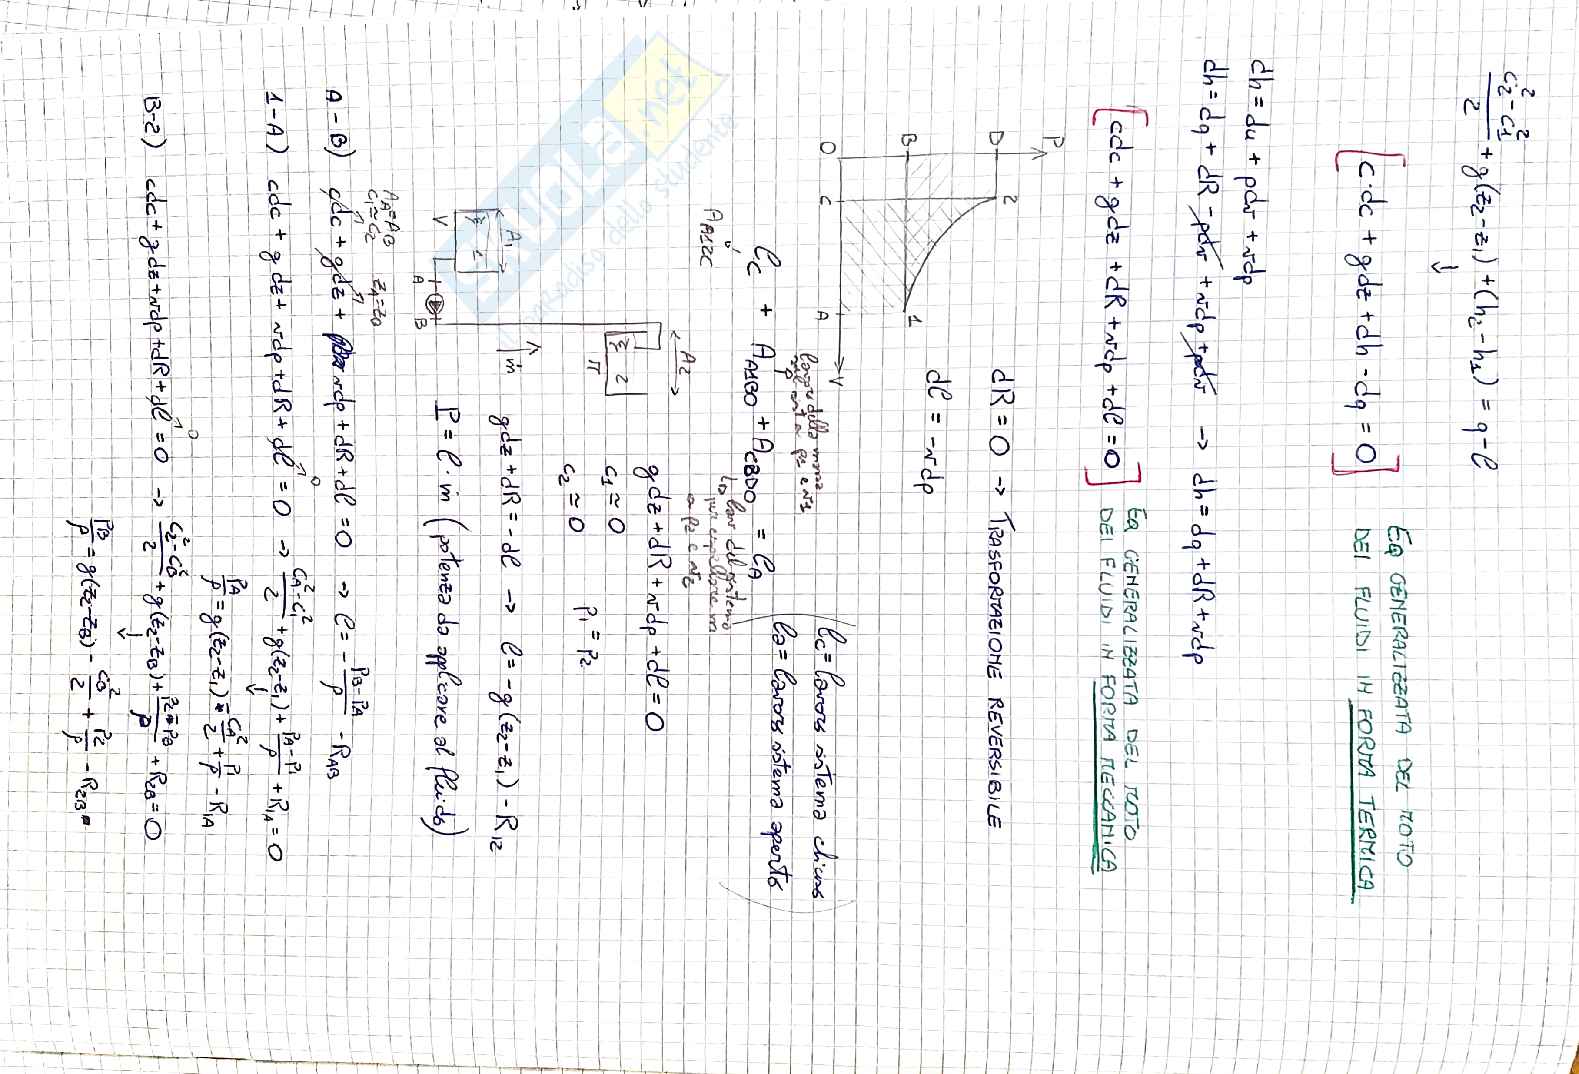 c₂² - c₁² / 2 + g(z₂-z₁) + (h₂-h₁) = q - l
↓
[c·dc + gdz + dh - dq = 0] EQ GENERALIZZATA DEL MOTO
DEI FLUIDI IN FORMA TERMICA
dh = du + pdv + vdp
dh = dq + dR - pdv + vdp + pdv → dh = dq + dR + vdp
[cdc + gdz + dR + vdp + dl = 0] EQ GENERALIZZATA DEL MOTO
DEI FLUIDI IN FORMA MECCANICA
P
D 2
B 1
O C A V
dR = 0 → TRASFORMAZIONE REVERSIBILE
dl = -vdp
lc + A_A1BO + A_C2DO = lA
A_A12C
lc = lavoro sistema chiuso
la = lavoro sistema aperto
A₁ 1 V A B
A₂ 2 M
ṁ
gdz + dR + vdp + dl = 0
c₁ ≃ 0
c₂ ≃ 0 p₁ = p₂
gdz + dR = -dl → l = -g(z₂-z₁) - R₁₂
P = l·ṁ (potenza da applicare al fluido)
A_A = A_B z_A = z_B
c₁ ≃ c₂
A-B) cdc + gdz + vdp + dR + dl = 0 → l = - (p_B - p_A)/ρ - R_AB
1-A) cdc + gdz + vdp + dR + dl = 0 → (c_A² - c₁²)/2 + g(z₂-z₁) + (p_A - p₁)/ρ + R₁A = 0
↓
p_A/ρ = g(z₂-z₁) - c_A²/2 + p₁/ρ - R₁A
B-2) cdc + gdz + vdp + dR + dl = 0 → (c₂² - c_B²)/2 + g(z₂-z_B) + (p₂ - p_B)/ρ + R₂B = 0
↓
p_B/ρ = g(z₂-z_B) - c_B²/2 + p₂/ρ - R₂B
SKUOLA.net
il paradiso dello studente